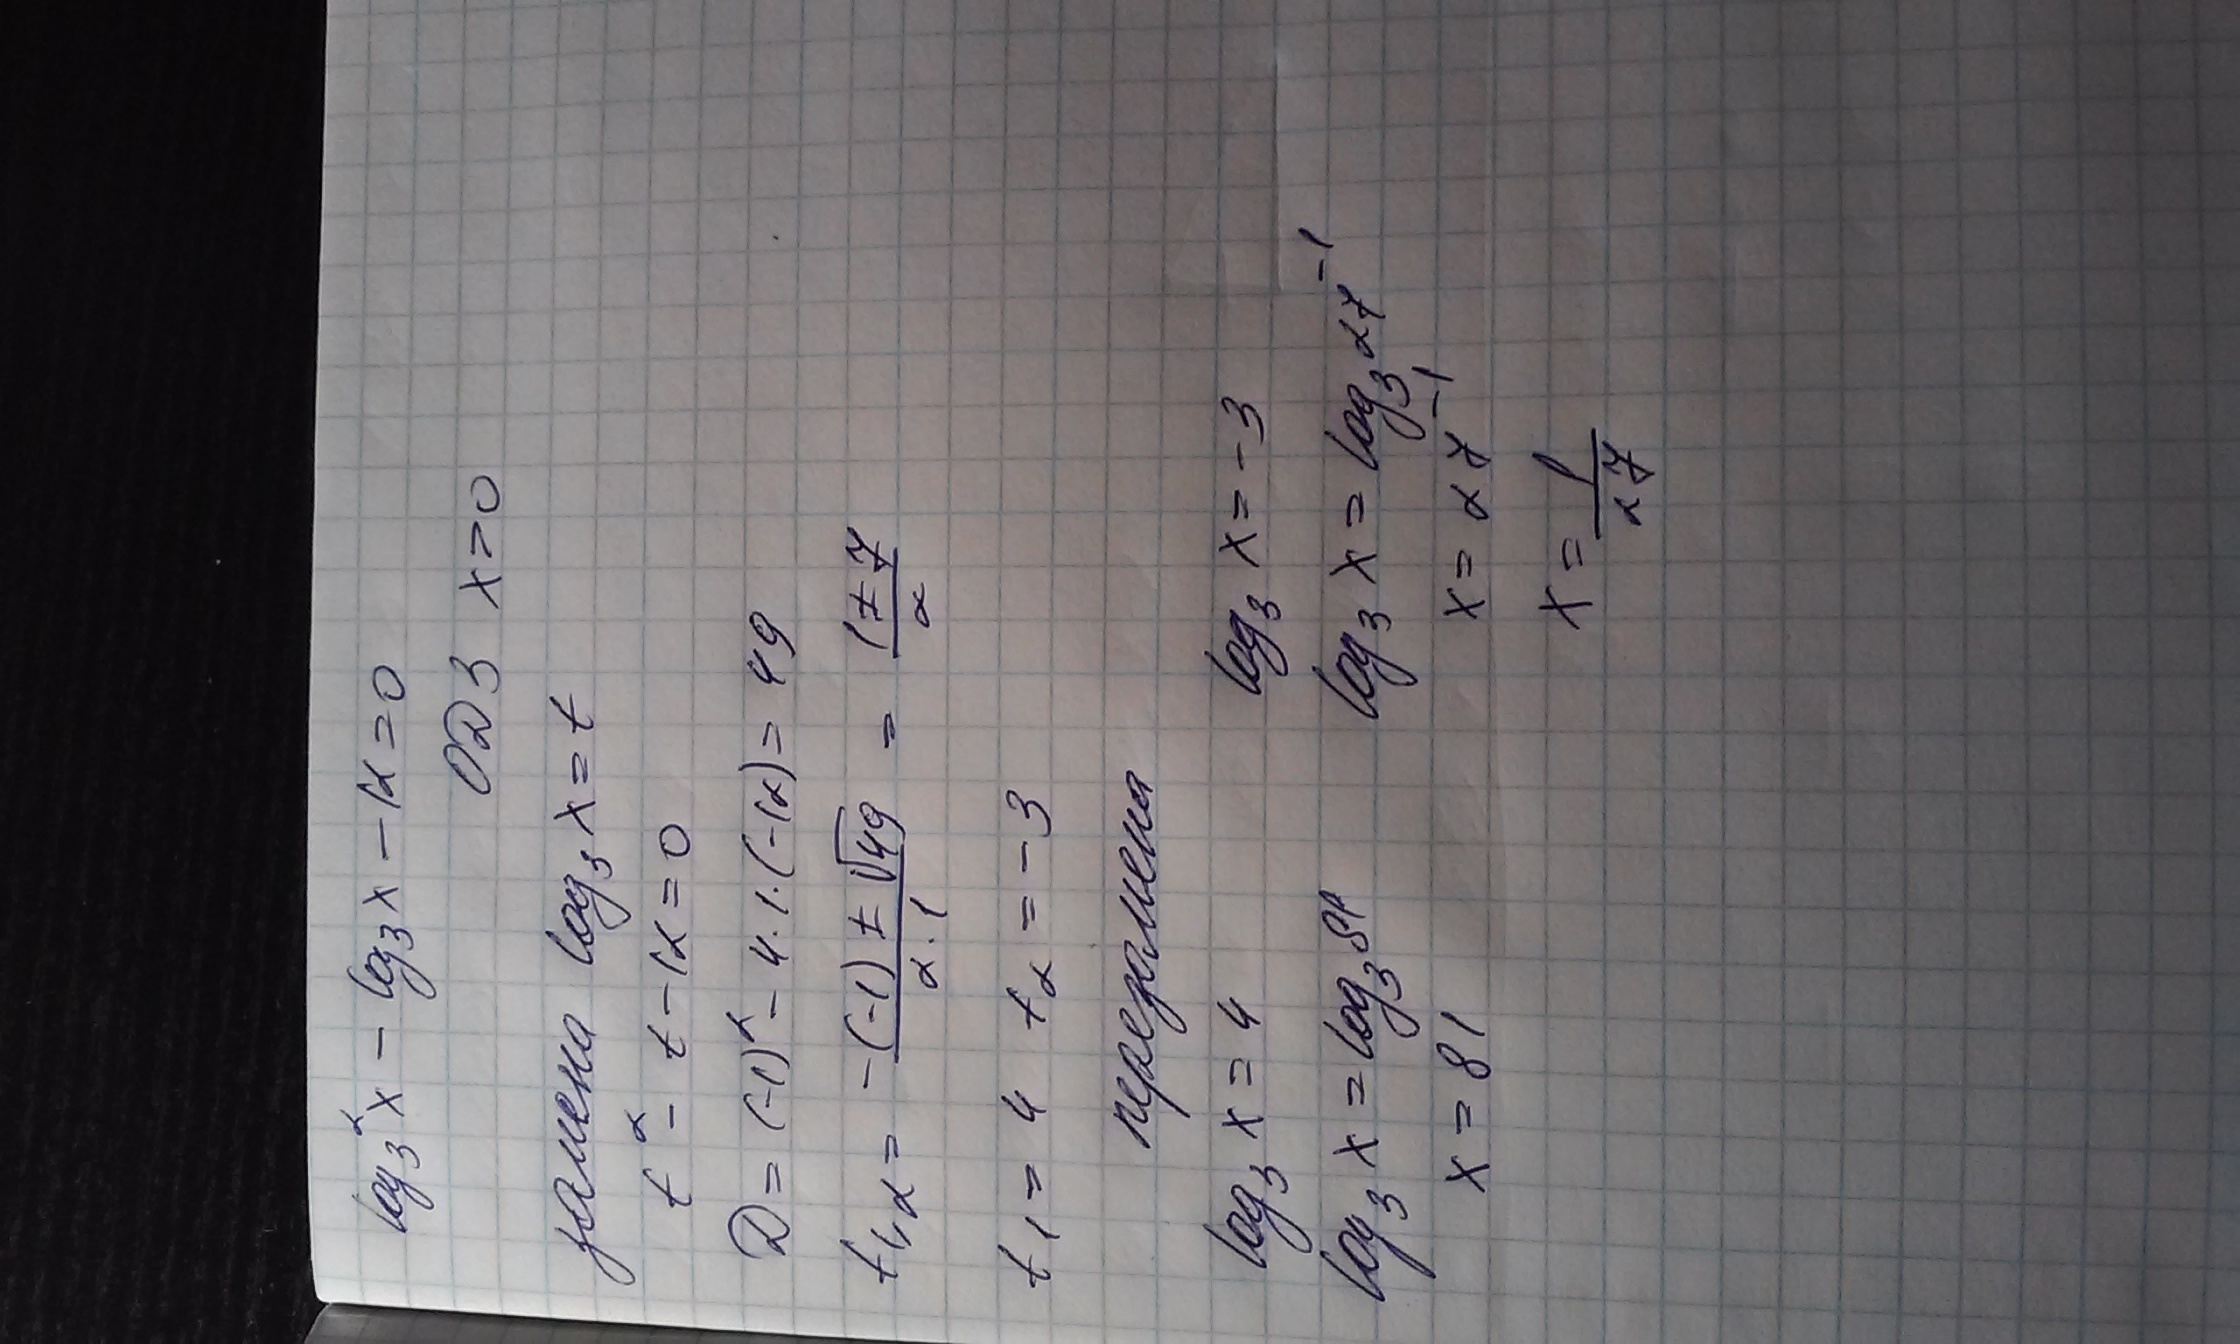 log₃²x - log₃x - 12 = 0
ОДЗ x=0
замена log₃x = t
t² - t - 12 = 0
D = (-1)² - 4·1·(-12) = 49
t₁,₂ = (-(-1) ± √49)/(2·1) = (1±7)/2
t₁ = 4 t₂ = -3
перезамена
log₃x = 4 log₃x = -3
log₃x = log₃81 log₃x = log₃27⁻¹
x = 81 x = 27⁻¹
x = 1/27